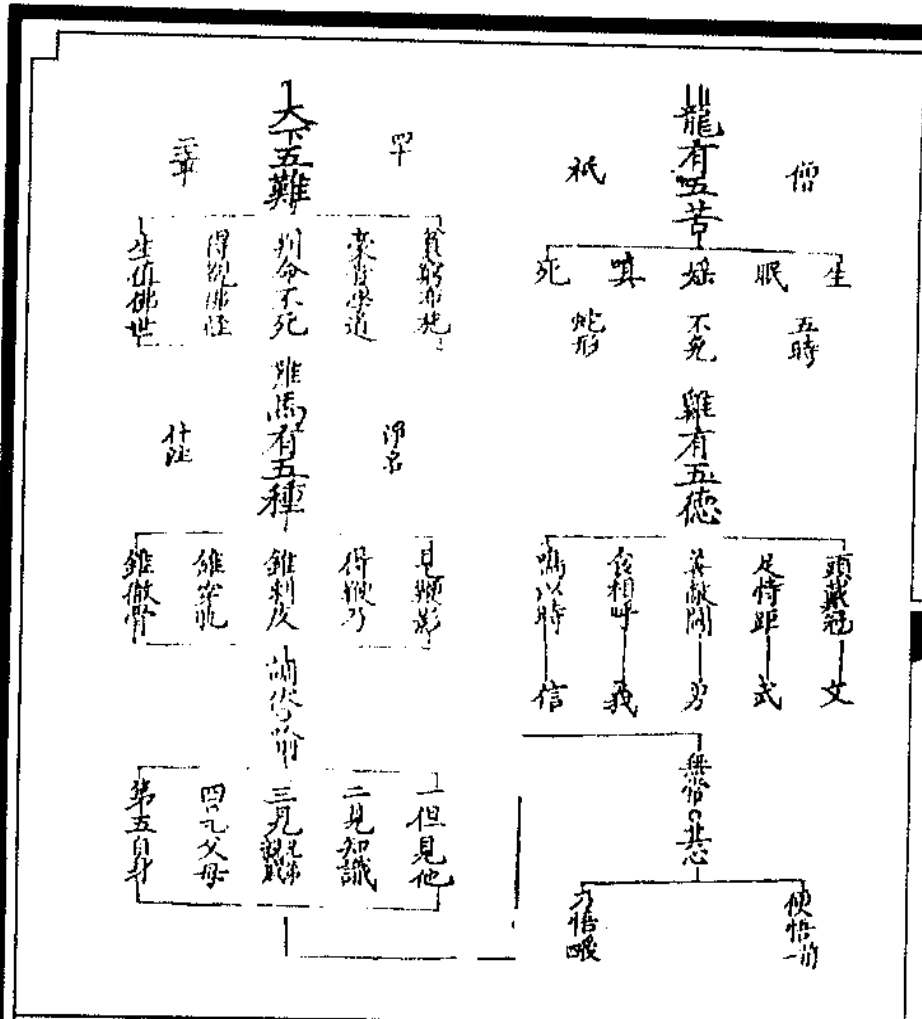 龍有五苦
僧
祇
生
眠
婬
嗔
死
五時
不免
蛇形
雞有五德
頭戴冠
文
足恃距
武
善敵鬪
勇
食相呼
義
鳴以時
信
便悟
天下五難
貧窮布施
豪貴學道
判命不死
得覩佛經
生值佛世
馬有五種
淨名
什註
見鞭影
得鞭乃
錐刺皮
錐穿肌
錐徹骨
一但見他
二見知識
三見
四見父母
第五自身